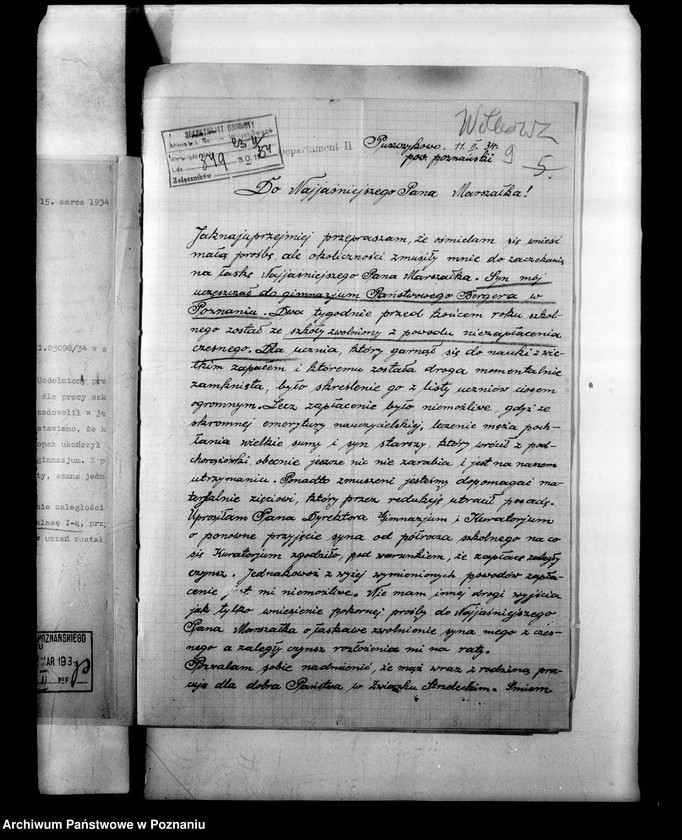 15. marca 1934
I.23096/34 w s
Uzdolniony
dla pracy szk
zadowolił w ję
stawiono, że k
opak ukończył
gimnazjum. Z p
ty, szans jedn
nie zaległości
klasę I-ą, prz
w uczeń został
POZNAŃSKIEGO
MAR 193
SEKRETARJAT OSOBISTY
Ministra Spraw Wojskowych
L.dz. 849
Załączników
Departament II
Puszczykowo. 11.II.34.
pow. poznański
9
5.
Do Najjaśniejszego Pana Marszałka!
Jaknajuprzejmiej przepraszam, że ośmielam się wnieść
małą prośbę, ale okoliczności zmusiły mnie do
na łaskę Najjaśniejszego Pana Marszałka. Syn mój
uczęszczał do gimnazjum Państwowego Bergera w
Poznaniu. Dwa tygodnie przed końcem roku szkol-
nego został ze szkoły zwolniony z powodu niezapłacenia
czesnego. Dla ucznia, który garnął się do nauki z wiel-
kim zapałem i któremu została droga momentalnie
zamknięta, było skreślenie go z listy uczniów ciosem
ogromnym. Lecz zapłacenie było niemożliwe, gdyż ze
skromnej emerytury nauczycielskiej, leczenie męża poch-
łania wielkie sumy i syn starszy, który wrócił z pod-
chorążówki, obecnie jeszcze nic nie zarabia i jest na naszem
utrzymaniu. Ponadto zmuszeni jesteśmy dopomagać ma-
terjalnie zięciowi, który przez redukcję utracił posadę.
Uprosiłam Pana Dyrektora Gimnazjum i Kuratorjum
o ponowne przyjęcie syna od półrocza szkolnego na co
się Kuratorjum zgodziło, pod warunkiem, że zapłacę zaległy
czynsz. Jednakowoż z wyżej wymienionych powodów zapła-
cenie jest mi niemożliwe. Nie mam innej drogi wyjścia
jak tylko wniesienie pokornej prośby do Najjaśniejszego
Pana Marszałka o łaskawe zwolnienie syna mego z czes-
nego a zaległy czynsz rozłożenia mi na raty.
Pozwalam sobie nadmienić, że mąż wraz z rodziną pra-
cuje dla dobra Państwa w Związku Strzeleckim. Śmiem
Archiwum Państwowe w Poznaniu